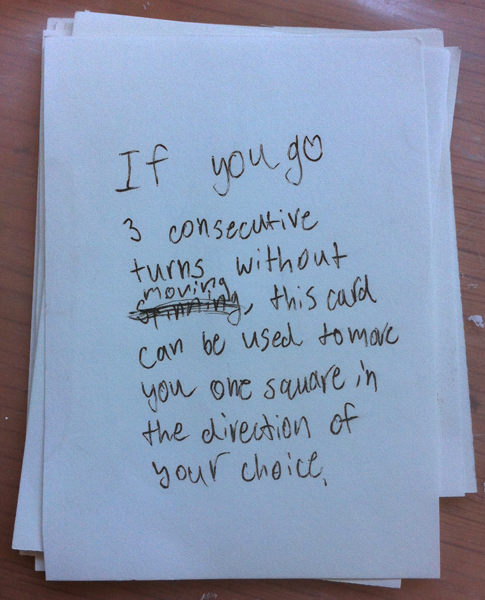 If you go
3 consecutive
turns without
moving
spinning, this card
can be used to move
you one square in
the direction of
your choice.